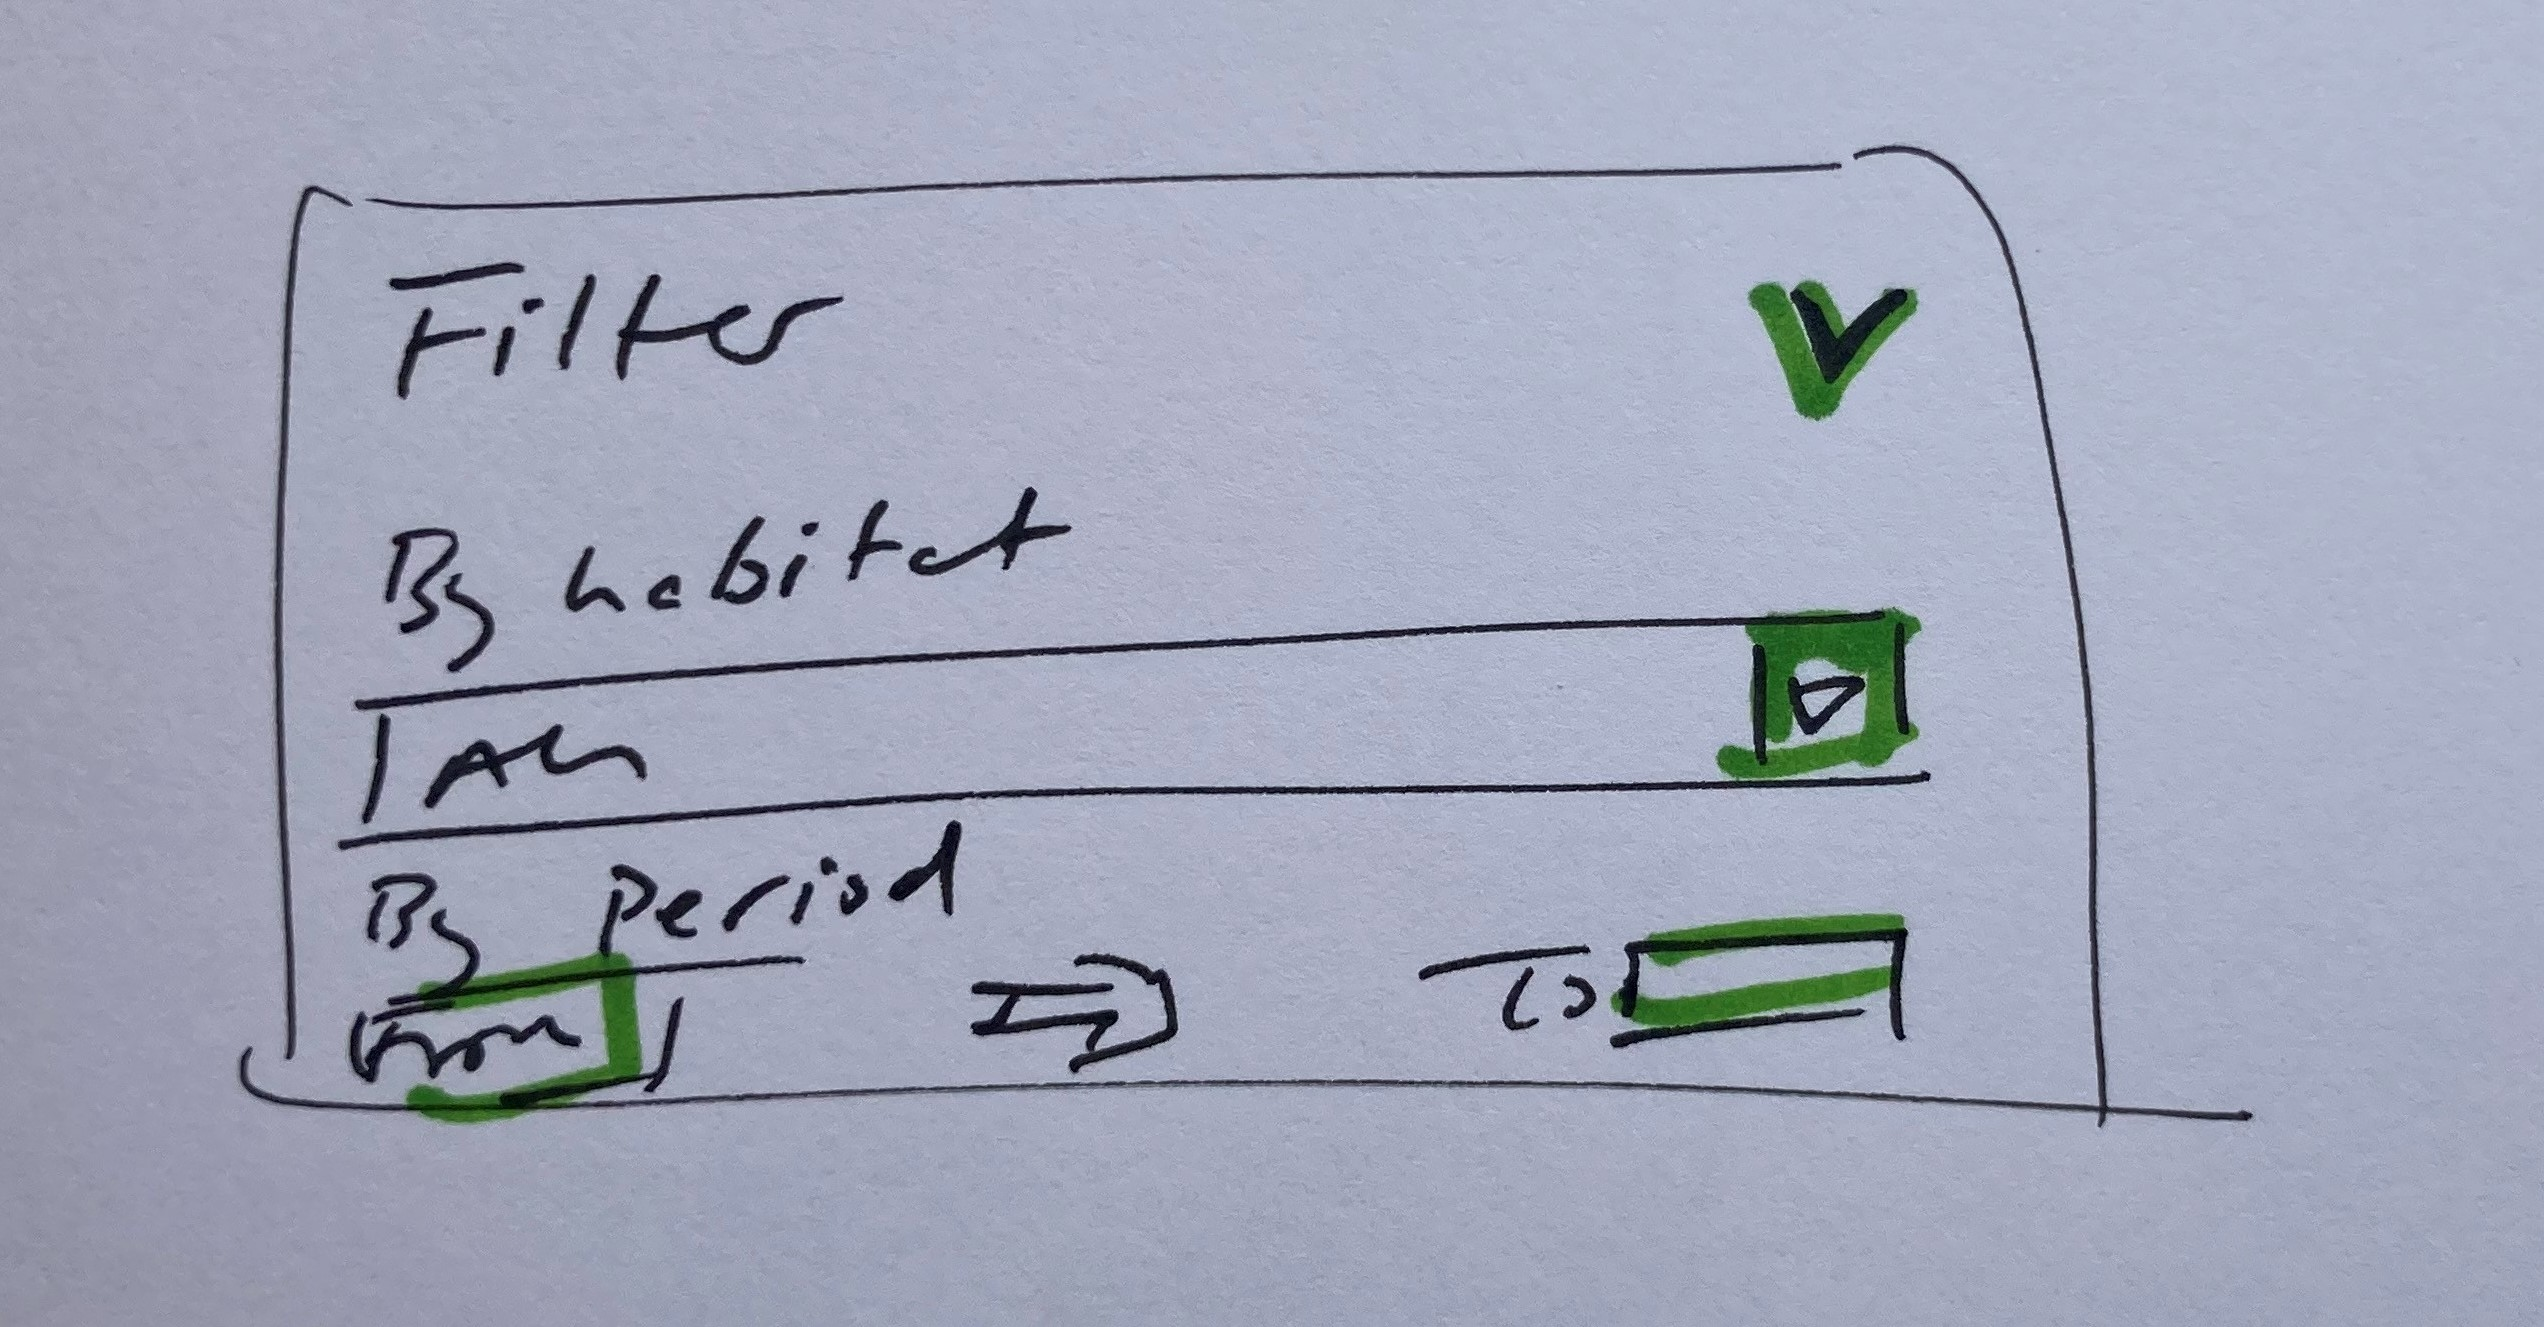 Filter
By habitat
All
By Period
From To